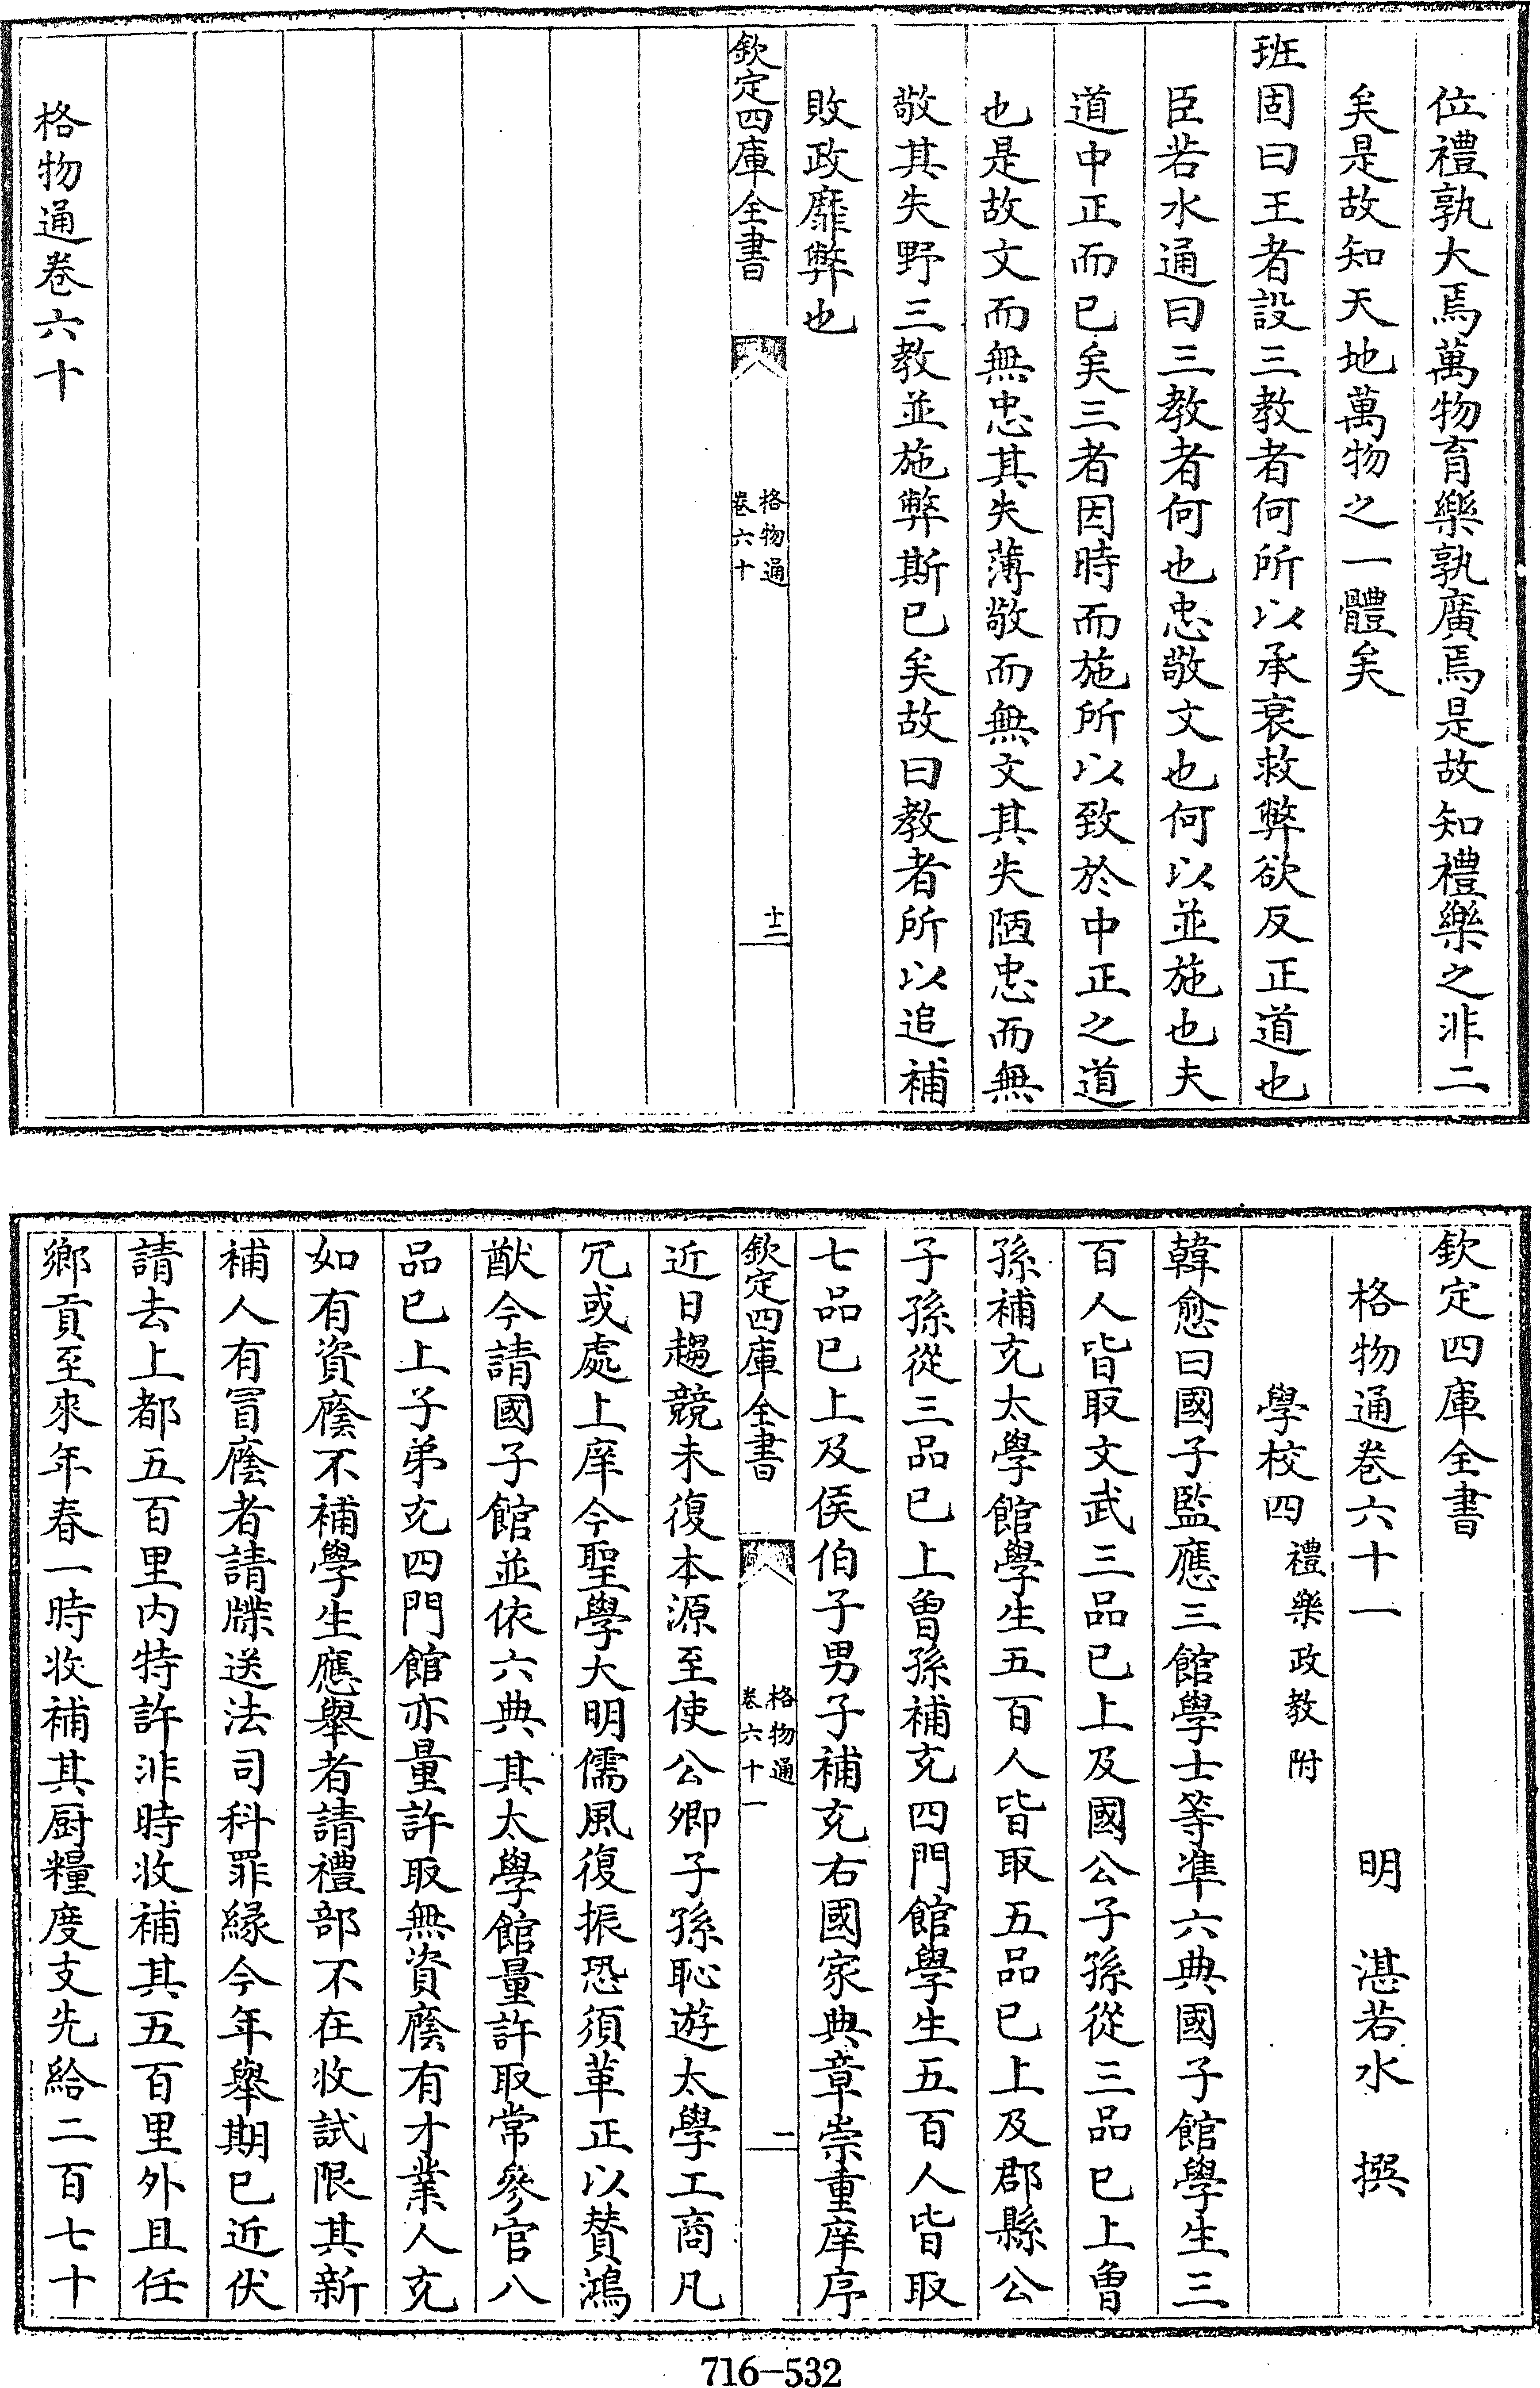 位禮孰大焉萬物育樂孰廣焉是故知禮樂之非二
矣是故知天地萬物之一體矣
班固曰王者設三教者何所以承衰救弊欲反正道也
臣若水通曰三教者何也忠敬文也何以並施也夫
道中正而已矣三者因時而施所以致於中正之道
也是故文而無忠其失薄敬而無文其失陋忠而無
敬其失野三教並施弊斯已矣故曰教者所以追補
敗政靡弊也
欽定四庫全書
格物通
卷六十
十二
格物通卷六十
欽定四庫全書
格物通卷六十一
明 湛若水 撰
學校四禮樂政教附
韓愈曰國子監應三館學士等準六典國子館學生三
百人皆取文武三品已上及國公子孫從三品已上曾
孫補充太學館學生五百人皆取五品已上及郡縣公
子孫從三品已上曾孫補充四門館學生五百人皆取
七品已上及侯伯子男子補充右國家典章崇重庠序
欽定四庫全書
格物通
卷六十一
二
近日趨競未復本源至使公卿子孫恥遊太學工商凡
冗或處上庠今聖學大明儒風復振恐須革正以賛鴻
猷今請國子館並依六典其太學館量許取常參官八
品已上子弟充四門館亦量許取無資廕有才業人充
如有資廕不補學生應舉者請禮部不在收試限其新
補人有冒廕者請牒送法司科罪緣今年舉期已近伏
請去上都五百里内特許非時收補其五百里外且任
鄉貢至來年春一時收補其厨糧度支先給二百七十
716-532